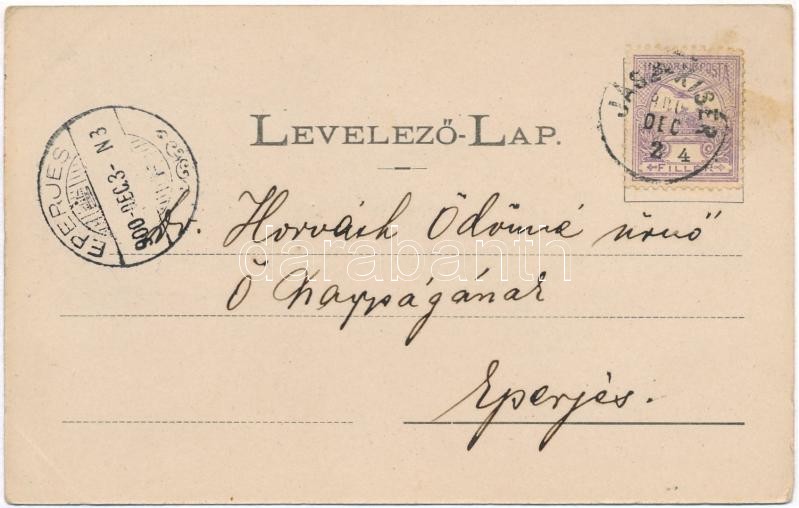 LEVELEZŐ-LAP.
MAGYAR KIR. POSTA
JÁSZ-KISÉR
DEC
2
4
FILLÉR
EPERJES
900 DEC. 3 - N3
Dr. Horváth Ödönné úrnő
Ő Nagyságának
Eperjes.
darabanth